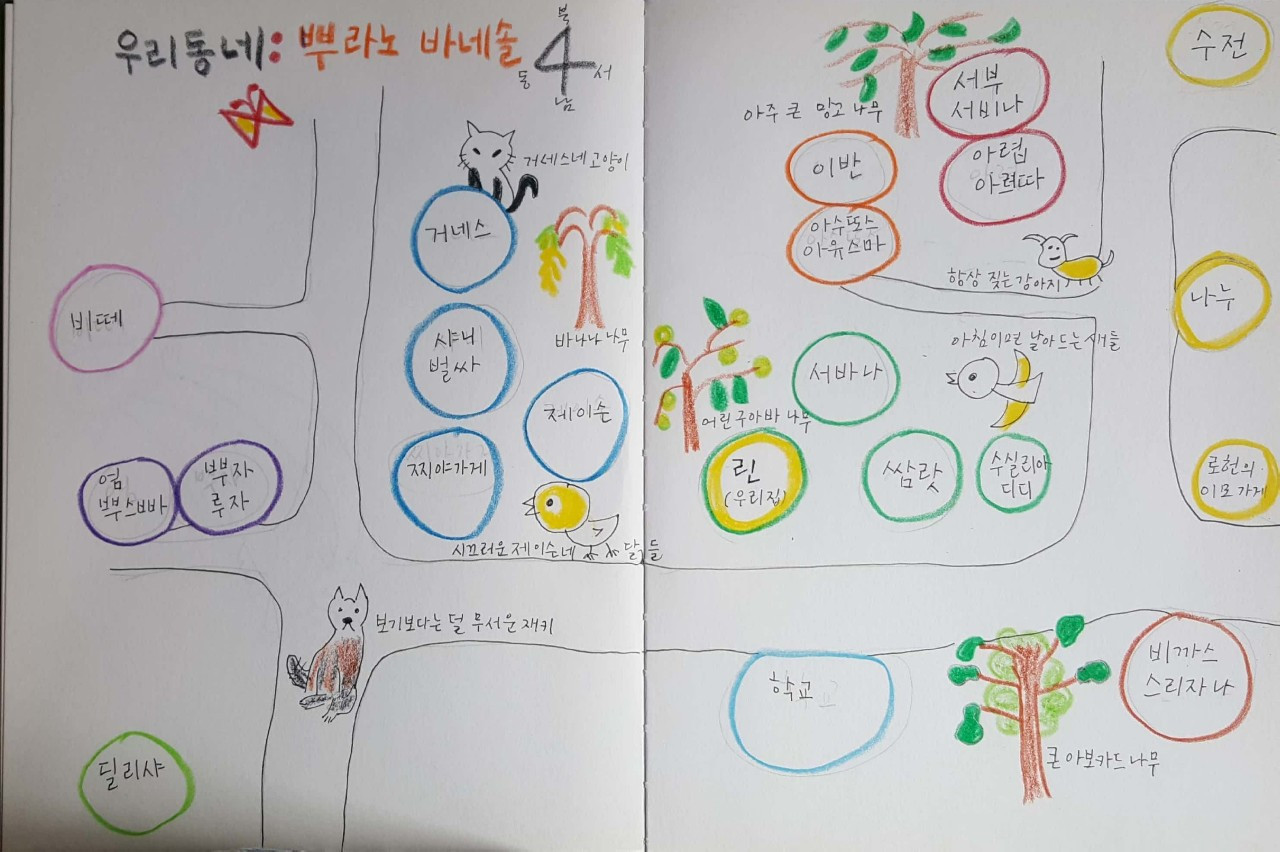 우리동네: 뿌라노 바네솔
북
동 서
남
수전
서부
서비나
아주 큰 망고 나무
이반
아렵
아력따
거네스네 고양이
거네스
아수또스
아유스마
항상 짖는 강아지
비떼
바나나 나무
나누
샤니
벌싸
아침이면 날아드는 새들
서바나
제이슨
어린 구아바 나무
찌야가게
린
(우리집)
쌈랏
수실리아
디디
로헌의
이모가게
염
뿌스빠
뿌자
루자
시끄러운 제이슨네 닭들
보기보다는 덜 무서운 재키
학교
비까스
스리자나
큰 아보카드 나무
딜리샤